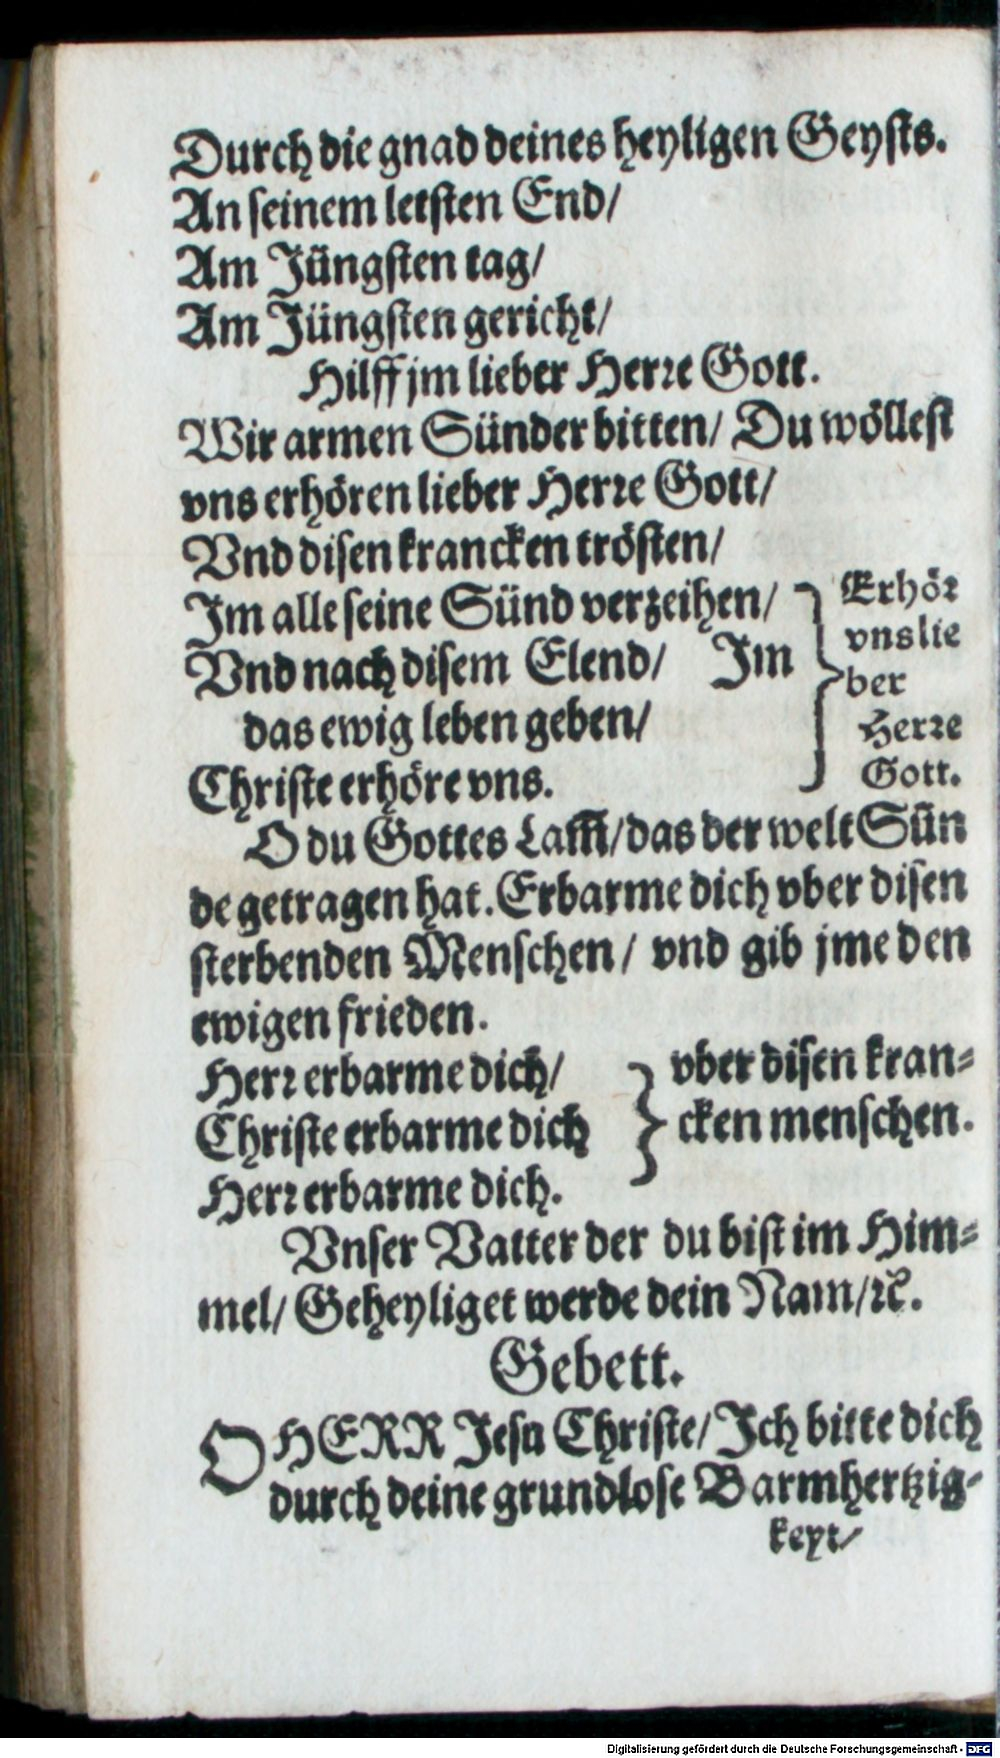 Durch die gnad deines heyligen Geysts.
An seinem letsten End/
Am Jüngsten tag/
Am Jüngsten gericht/
Hilff jm lieber Herre Gott.
Wir armen Sünder bitten/ Du wöllest
vns erhören lieber Herre Gott/
Vnd disen krancken trösten/
Im alle seine Sünd verzeihen/
Vnd nach disem Elend/ Im
das ewig leben geben/
Christe erhöre vns.
Erhör
vns lie
ber
Herre
Gott.
O du Gottes Lam̃/ das der welt Sün
de getragen hat. Erbarme dich vber disen
sterbenden Menschen/ vnd gib jme den
ewigen frieden.
Herr erbarme dich/
Christe erbarme dich
Herr erbarme dich.
vber disen kran-
cken menschen.
Vnser Vatter der du bist im Him-
mel/ Geheyliget werde dein Nam/ ꝛc̃.
Gebett.
O HERR Jesu Christe/ Ich bitte dich
durch deine grundlose Barmhertzig-
keyt/
Digitalisierung gefördert durch die Deutsche Forschungsgemeinschaft - DFG